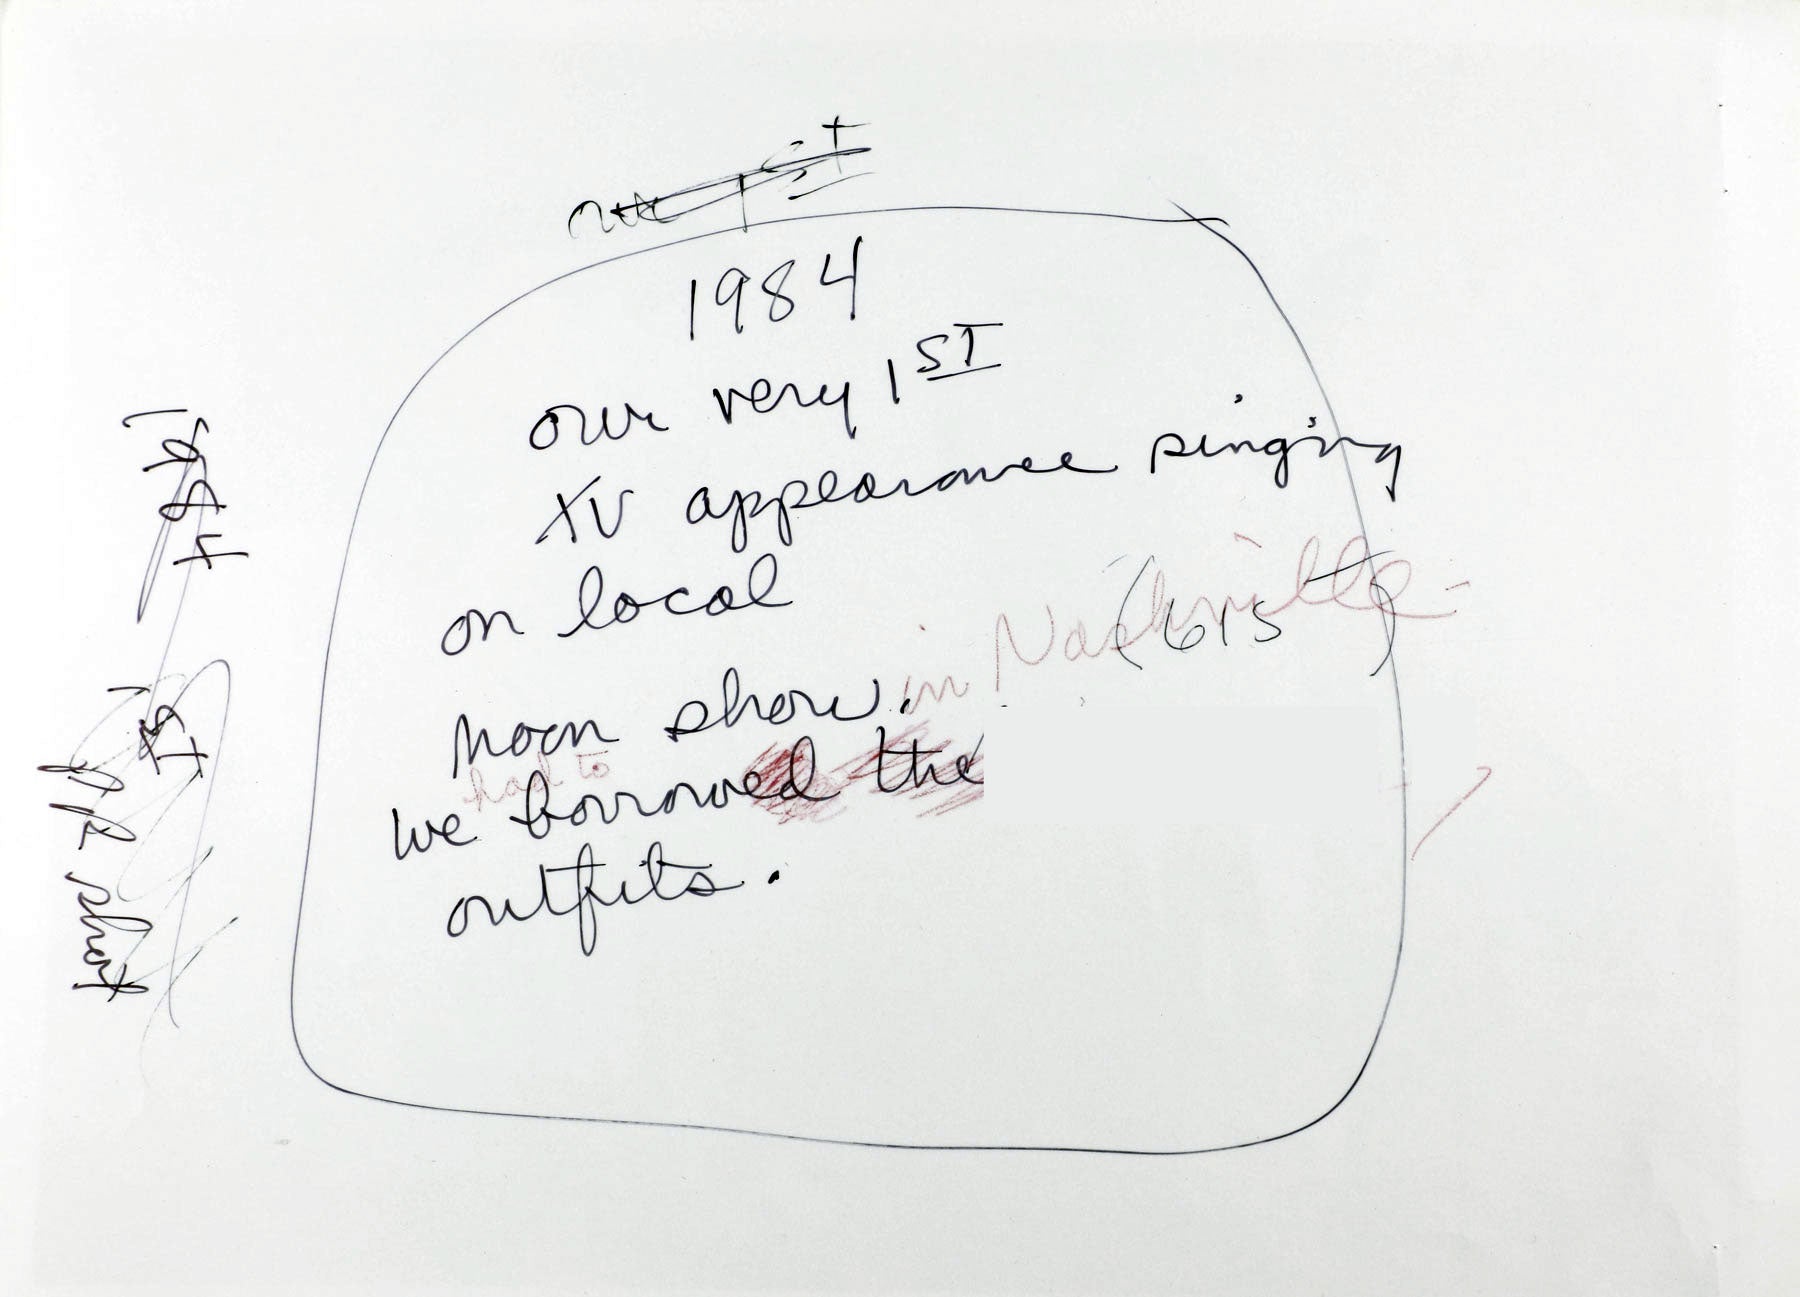 our 1st
1984
our very 1ST
TV appearance singing
on local
Noon show. in Nashville-
(615)
had to
we borrowed the
outfits.
1984
1st
pp shot